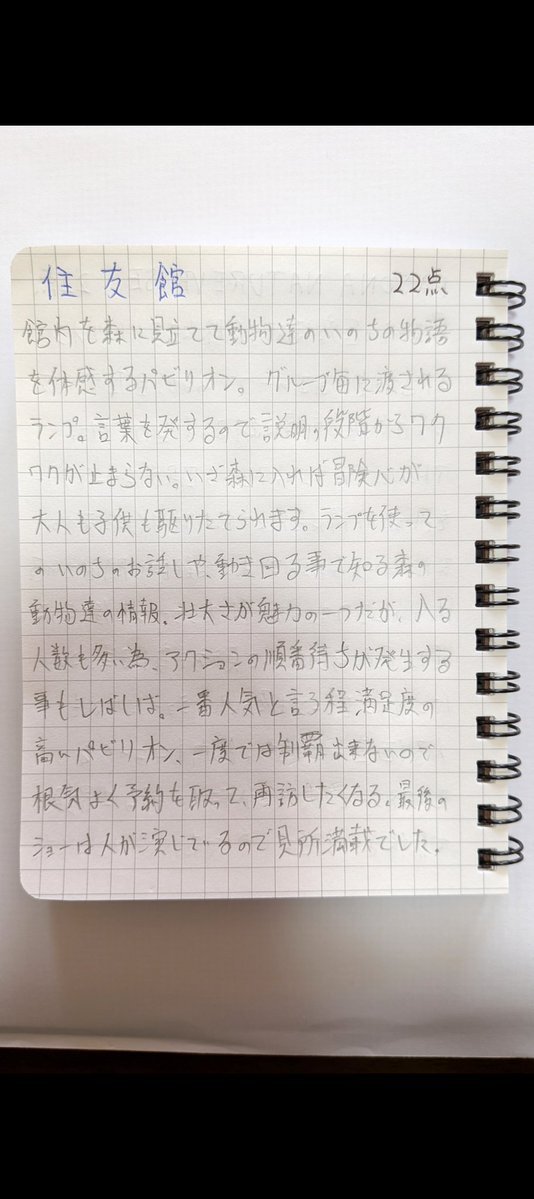 住友館 22点
館内を森に見立てて動物達のいのちの物語
を体感するパビリオン。グループ毎に渡される
ランプ。言葉を発するので説明の段階からワク
ワクが止まらない。いざ森に入れば冒険心が
大人も子供も駆りたてられます。ランプを使って
のいのちのお話しや、動き回る事で知る森の
動物達の情報。壮大さが魅力の一つだが、入る
人数も多い為、アクションの順番待ちが発生する
事もしばしば。二番人気と言う程満足度の
高いパビリオン、一度では制覇出来ないので
根気よく予約を取って、再訪したくなる。最後の
ショーは人が演じているので見所満載でした。